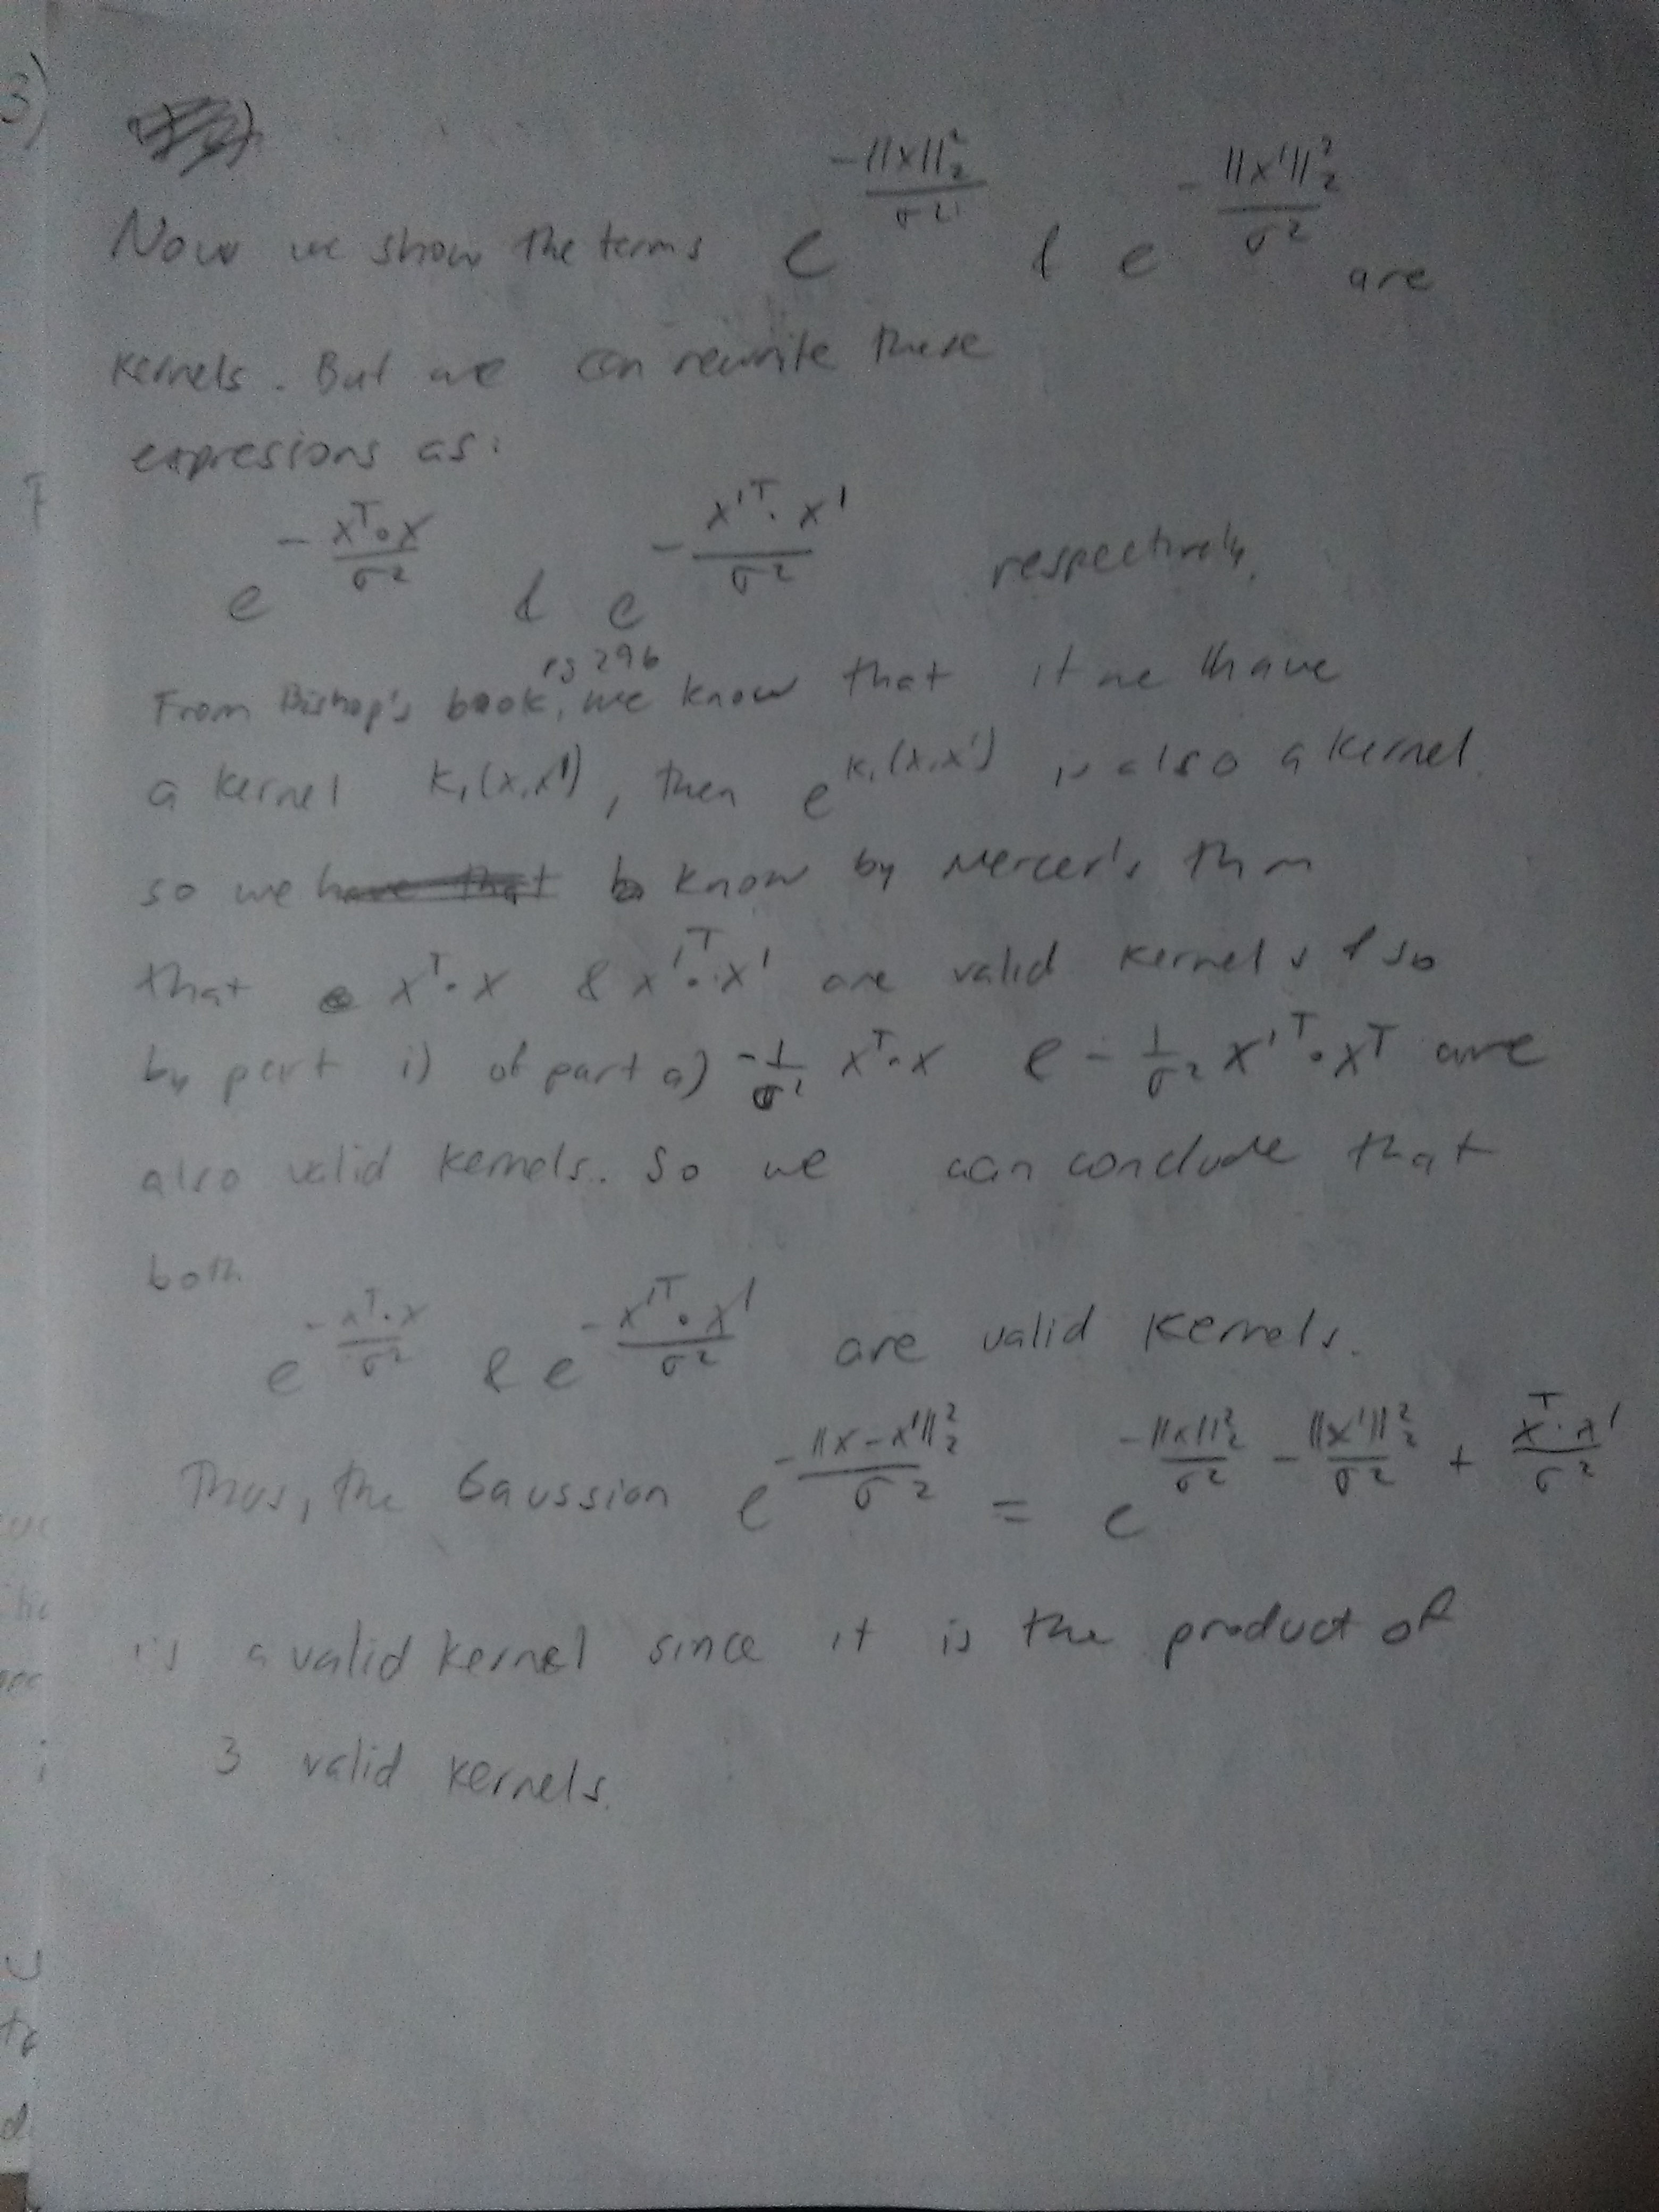 3)
Now we show the terms e^{-||x||_2^2 / σ^2} & e^{-||x'||_2^2 / σ^2} are
kernels. But we can rewrite these
expresions as:
e^{-x^T·x / σ^2} & e^{-x'^T·x' / σ^2} respectively,
From Bishop's book, pg 296 we know that if we have
a kernel k_1(x,x'), then e^{k_1(x,x')} is also a kernel.
so we have that know by Mercer's thm
that x^T·x & x'^T·x' are valid kernels & so
by part i) of part a) -1/σ^2 x^T·x & -1/σ^2 x'^T·x^T are
also valid kernels. So we can conclude that
both
e^{-x^T·x / σ^2} & e^{-x'^T·x' / σ^2} are valid kernels.
Thus, the Gaussian e^{-||x-x'||_2^2 / σ^2} = e^{-||x||_2^2 / σ^2 - ||x'||_2^2 / σ^2 + x^T·x' / σ^2}
is a valid kernel since it is the product of
3 valid kernels.